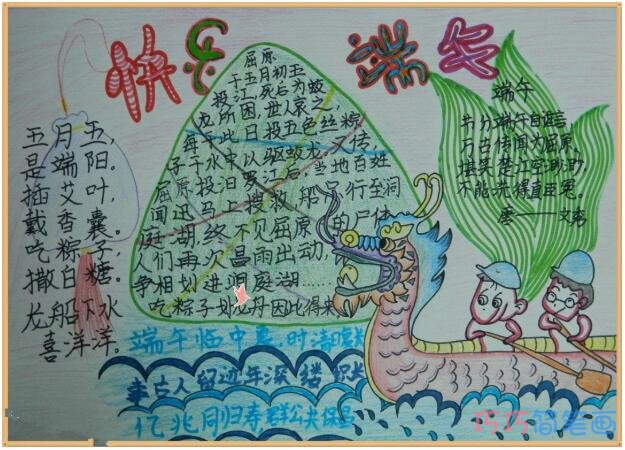 快乐 端午
五月五,
是端阳。
插艾叶,
戴香囊。
吃粽子,
撒白糖。
龙船下水
喜洋洋。
屈原
于五月初五
投江,死后为蛟
龙所困,世人哀之,
每于此日投五色丝粽
子于水中以驱蛟龙。又传,
屈原投汨罗江后,当地百姓
闻迅马上搜救,船只行至洞
庭湖,终不见屈原的尸体
人们再次冒雨出动,
争相划进洞庭湖......
吃粽子划龙舟因此得来
端午
节分端午自谁言,
万古传闻为屈原。
堪笑楚江空渺渺,
不能洗得直臣冤。
唐——文秀
端午临中夏,时清
事古人留迹年深缕积长
亿兆同归寿群公共保
巧巧简笔画